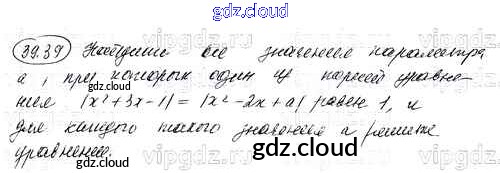 gdz.cloud
39.39 Найдите все значения параметра
а, при которых один из корней уравне-
ния |x² + 3x - 1| = |x² - 2x + a| равен 1, и
для каждого такого значения а решите
уравнение.
gdz.cloud
gdz.cloud
vipgdz.cloud
vipgdz.cloud